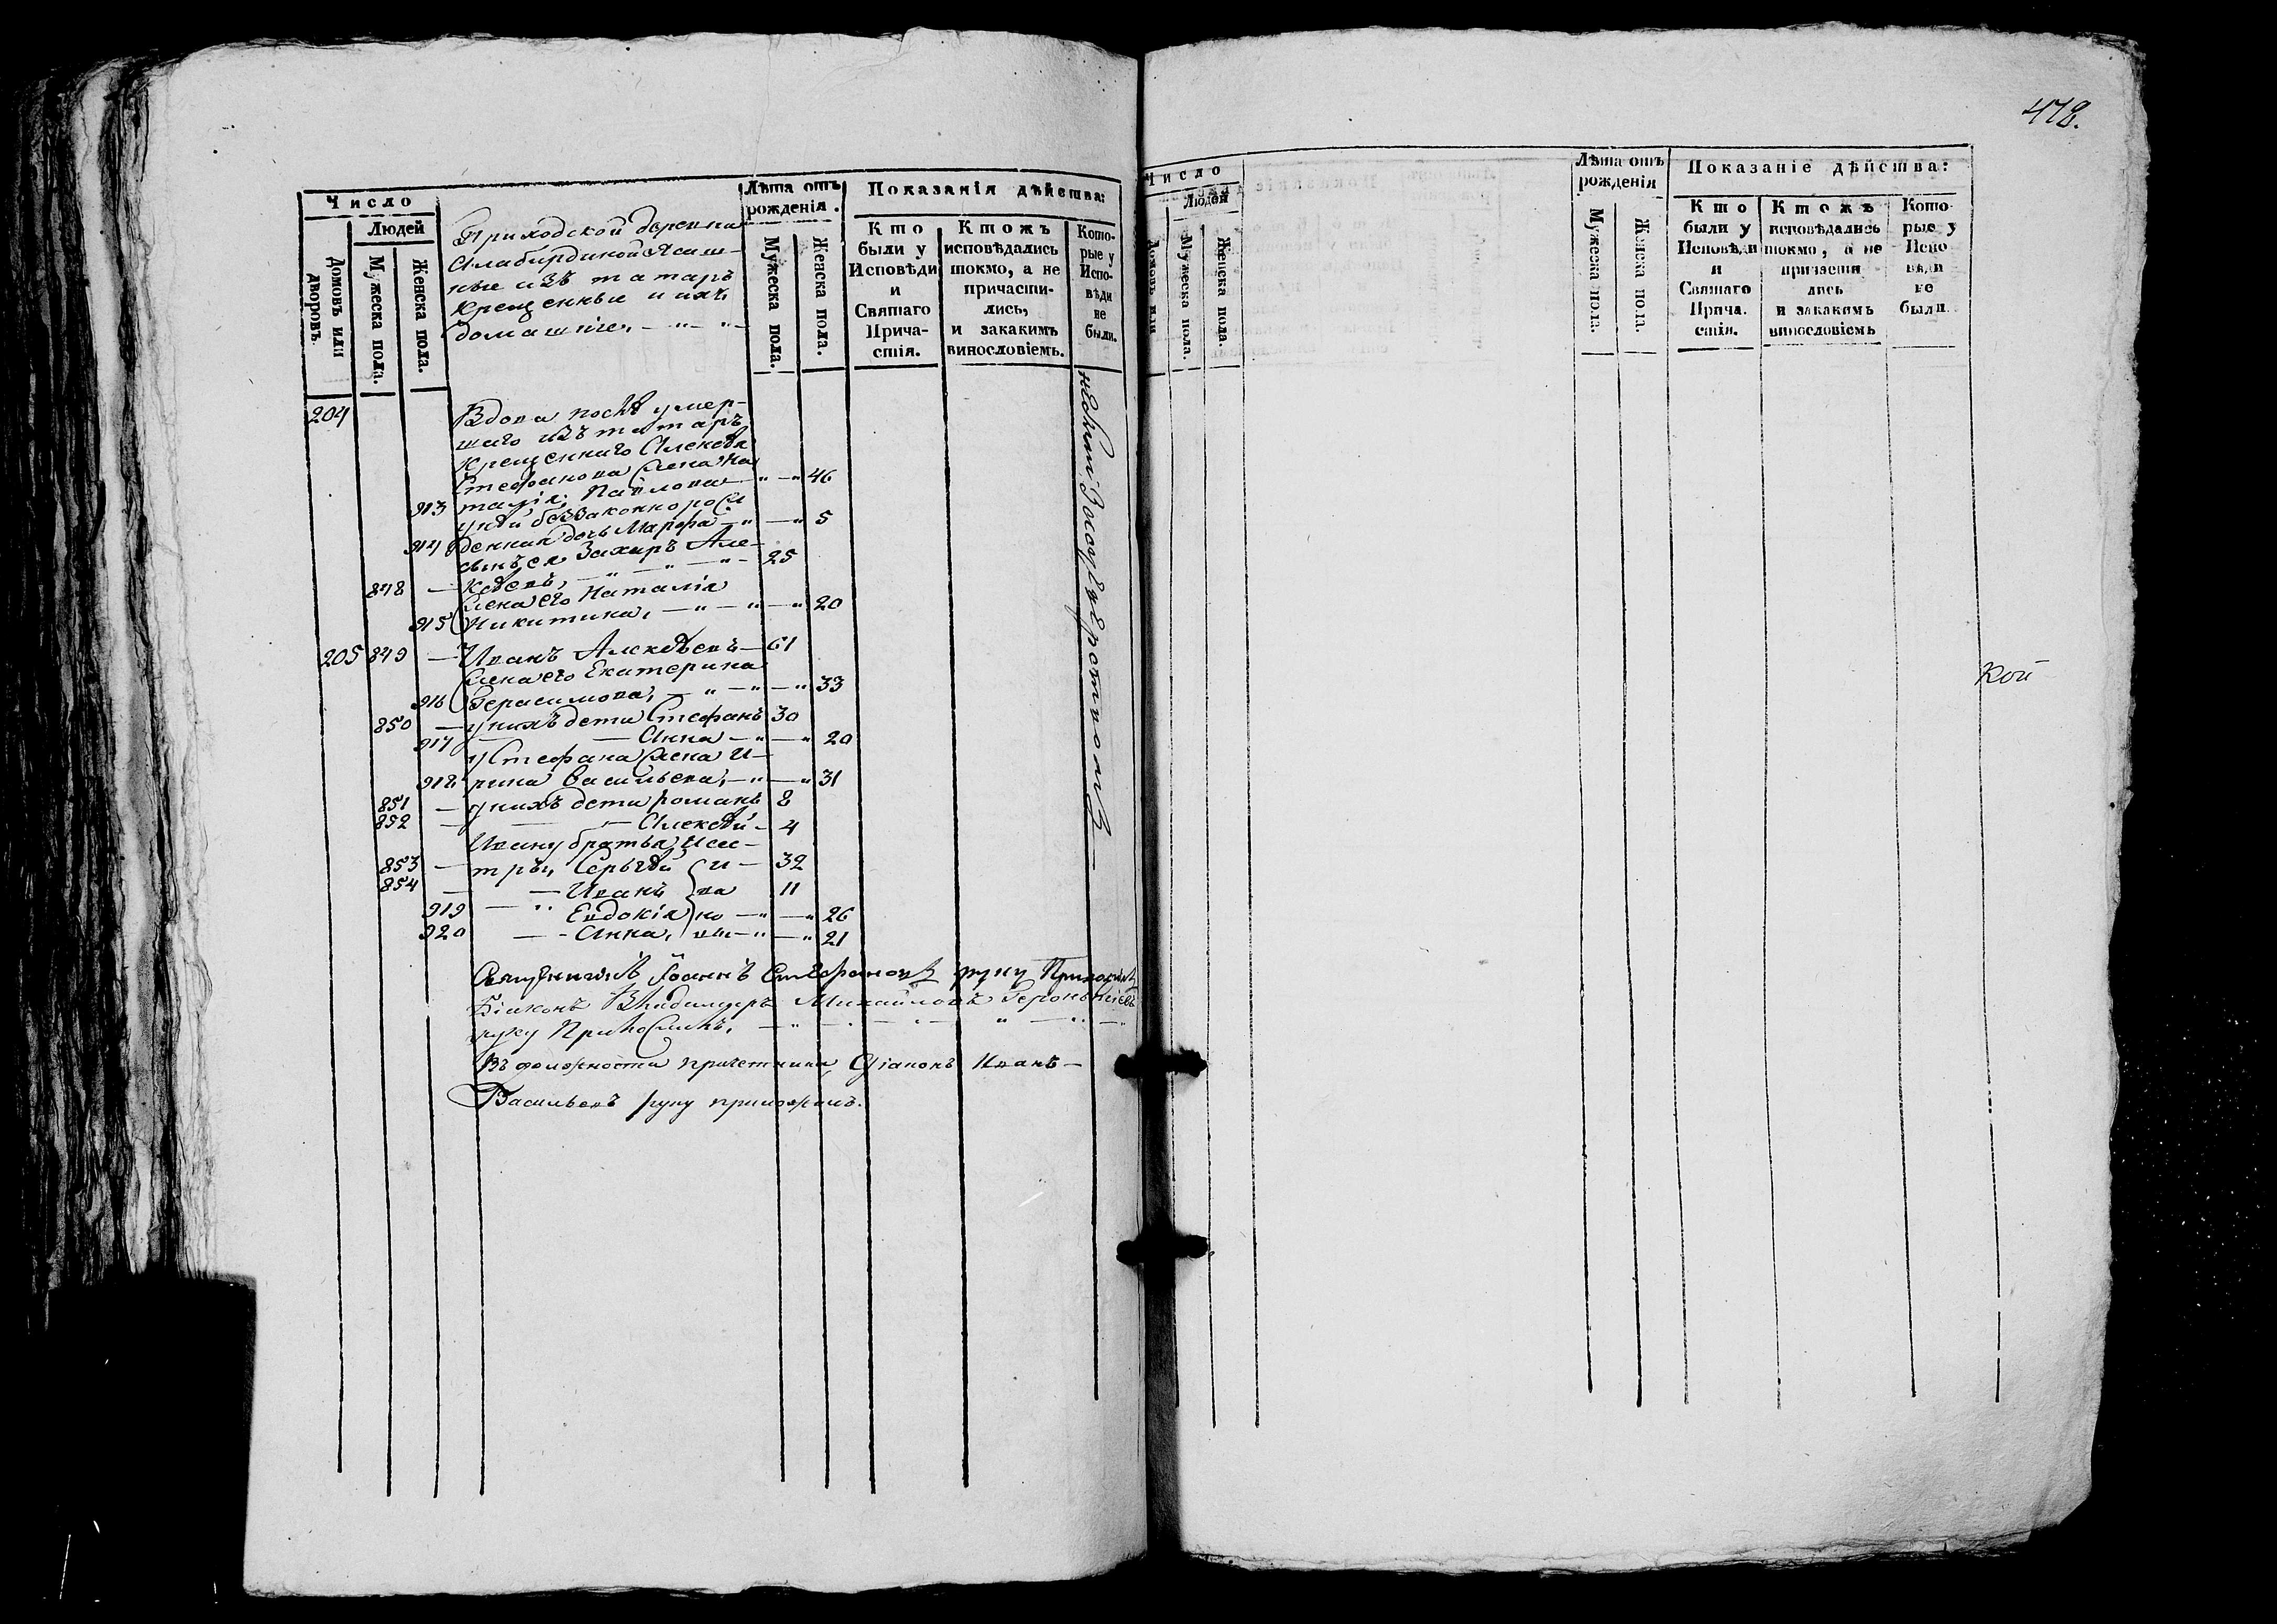 Число
Людей
Домовъ или дворовъ.
Мужеска пола.
Женска пола.
Приходской деревни
Алабирдиной Ясаш-
ные изъ татаръ
крещенныи и ихъ
домашніе,
Лѣта отъ рожденія.
Мужеска пола.
Женска пола.
Показанія дѣйства:
Кто были у Исповѣди и Святаго Причастія.
Ктожъ исповѣдались токмо, а не причастились, и закакимъ винословіемъ.
Которые у Исповѣди не были.
204 Вдова послѣ умер-
шаго изъ татаръ
крещеннаго Алексѣя
Стефанова жена На
913 талія Павлова 46
у ней беззаконнорож
914 денная дочь Марфа 5
Захаръ Але-
848 — ксѣевъ, 25
жена его Наталія
915 Никитина, 20
205 849 — Иванъ Алексѣевъ — 61
жена его Екатерина
916 Герасимова, 33
850 — у нихъ дети Стефанъ 30
917 — Анна 20
у Стефана жена И-
918 рина Васильева, 31
851 — у нихъ дети романъ 8
852 — Алексѣй 4
Ивану братья и сес-
853 — тры, Сергѣй и — 32
854 — Иванъ ва 11
919 Евдокія но 26
920 Анна, вы 21
Священникъ Іоаннъ Стефановъ руку Приложилъ
Діаконъ Владимеръ Михайловъ
руку Приложилъ,
Въ должности причетника Діаконъ Иванъ —
Васильевъ руку приложилъ.
478.
Число
Людей
Домовъ или
Мужеска пола.
Женска пола.
Лѣта отъ рожденія
Мужеска пола.
Женска пола.
Показаніе дѣйства:
Кто были у Исповѣди и Святаго Причастія.
Ктожъ исповѣдались токмо, а не причастились и закакимъ винословіемъ
Которые у Исповѣди не были.
кой